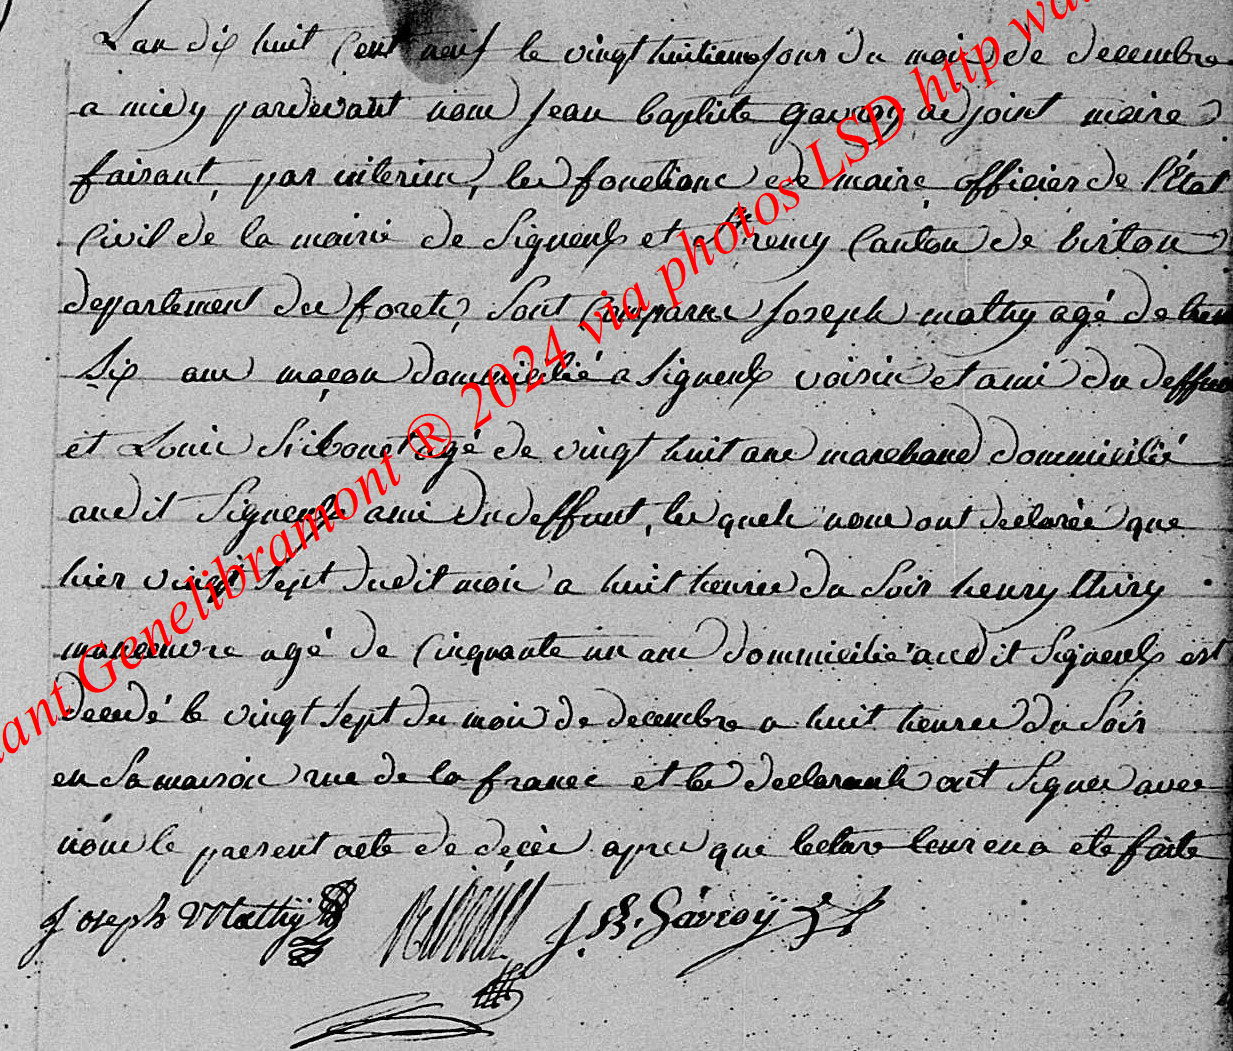 L'an dix huit Cent neuf le vingt huitieme Jour du mois de decembre
a midy pardevant nous Jean baptiste Gavroy adjoint maire
faisant, par interim, les fonctions de maire officier de l'État
Civil de la mairie de Signeulx et St remy Canton de virton
departement des forets, Sont Comparus Joseph mathy agé de trente
Six ans maçon dommicilié a Signeulx voisin et ami du deffunt
et Louis agé de vingt huit ans marchand dommicilié
audit Signeulx ami du deffunt, les quels nous ont declarée que
hier vingt Sept dudit mois a huit heures du Soir henry thiry
manoeuvre agé de Cinquante un ans dommicilié audit Signeulx est
decedé le vingt Sept du mois de decembre a huit heures du Soir
en Sa maison rue de la france et les declarants ont Signés avec
nous le present acte de décès apres que lecture leur en a eté faite
Joseph Mathÿ J. B. Gavroÿ
tant Genelibramont ® 2024 via photos LSD http wa